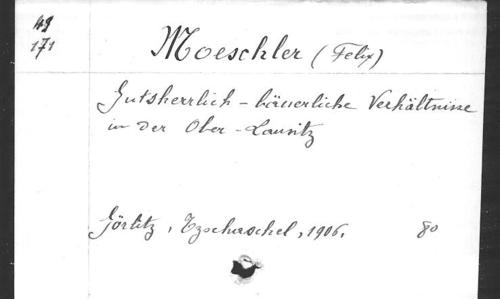 49
171
Moeschler (Felix)
Gutsherrlich-bäuerliche Verhältnisse
in der Ober-Lausitz
Görlitz, Tzschaschel, 1906. 8o